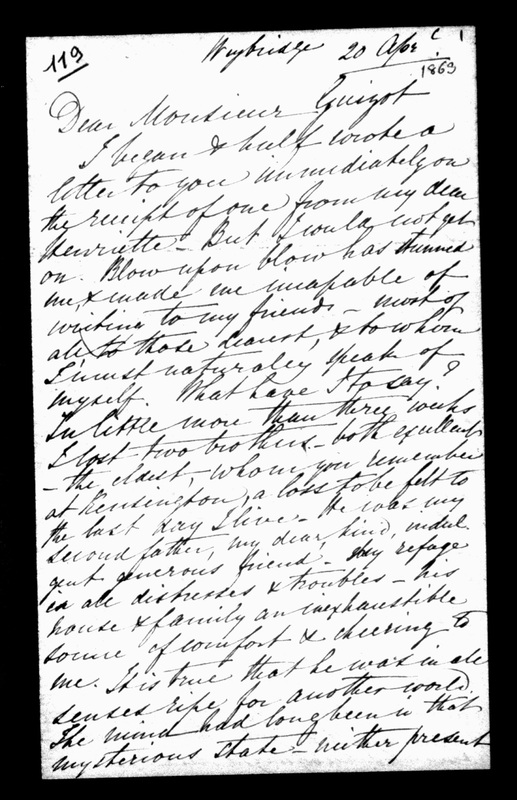 119
Weybridge 20 Apr.
1869
Dear Monsieur Guizot
I began & half wrote a
letter to you immediately on
the receipt of one from my dear
Henriette - But I could not get
on. Blow upon blow has stunned
me, & made me incapable of
writing to my friends - most of
all to those dearest, & to whom
I must naturally speak of
myself. What have I to say?
In little more than three weeks
I lost two brothers - both excellent
- the eldest, whom you remember
at Kensington, a loss to be felt to
the last day I live - He was my
second father, my dear, kind, indul
gent generous friend - my refuge
in all distresses & troubles - his
house & family an inexhaustible
source of comfort & cheering to
me. It is true that he was in all
senses ripe for another world.
The mind had long been in that
mysterious state - neither present